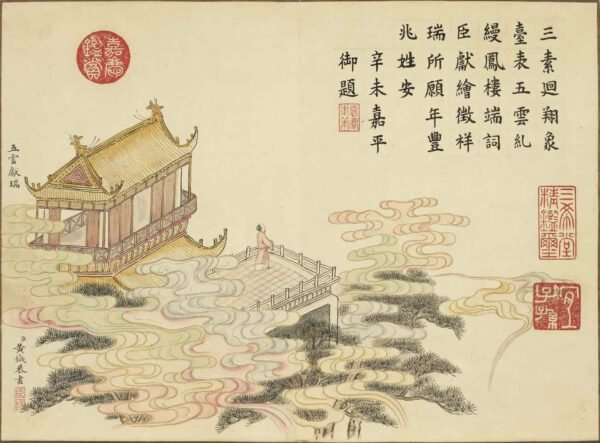 三素迴翔象
臺表五雲糺
縵鳳樓端詞
臣獻繪徵祥
瑞所願年豐
兆姓安
辛未嘉平
御題
三希堂精鑑璽
宜子孫
嘉慶鑑賞
五雲獻瑞
臣黃鉞恭畫